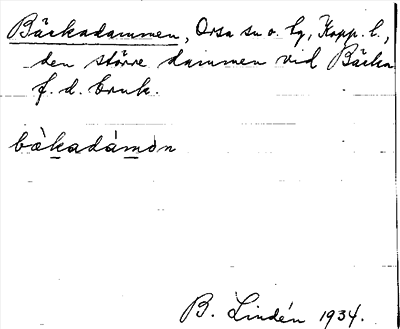 Bäckadammen, Orsa sn o. tg, Kopp. l.,
den större dammen vid Bäcka
f. d. bruk.
bàkadámon
B. Lindén 1934.